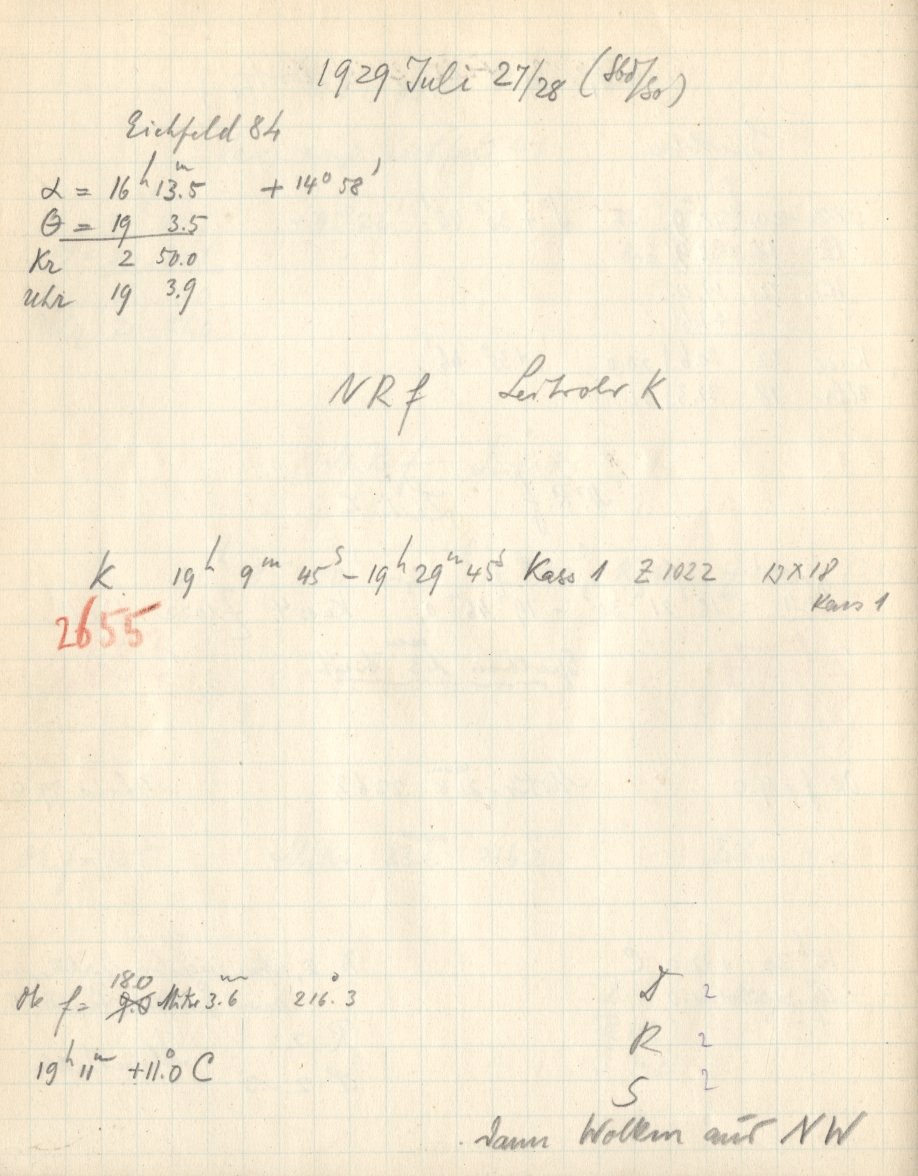 1929 Juli 27/28 (Sbd/So)
Eichfeld 84
α = 16h 13.5m + 14° 58'
Θ = 19 3.5
Kr 2 50.0
Uhr 19 3.9
NRf Leitrohr K
K 19h 9m 45s – 19h 29m 45s Kass 1 Z 1022 13×18
Kass 1
2655
18.0
f = 9.0 Mitte 3.6m 216.3°
19h 11m +11.0° C
D 2
R 2
S 2
dann Wolken aus NW